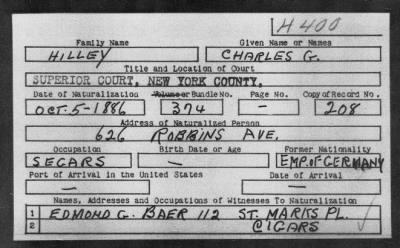 H400
Family Name Given Name or Names
HILLEY CHARLES G.
Title and Location of Court
SUPERIOR COURT, NEW YORK COUNTY.
Date of Naturalization Volume or Bundle No. Page No. Copy of Record No.
OCT. 5-1886 374 — 208
Address of Naturalized Person
626 ROBBINS AVE.
Occupation Birth Date or Age Former Nationality
SEGARS — EMP. OF GERMANY
Port of Arrival in the United States Date of Arrival
— —
Names, Addresses and Occupations of Witnesses To Naturalization
1 EDMOND G. BAER 112 ST. MARKS PL.
2 CIGARS